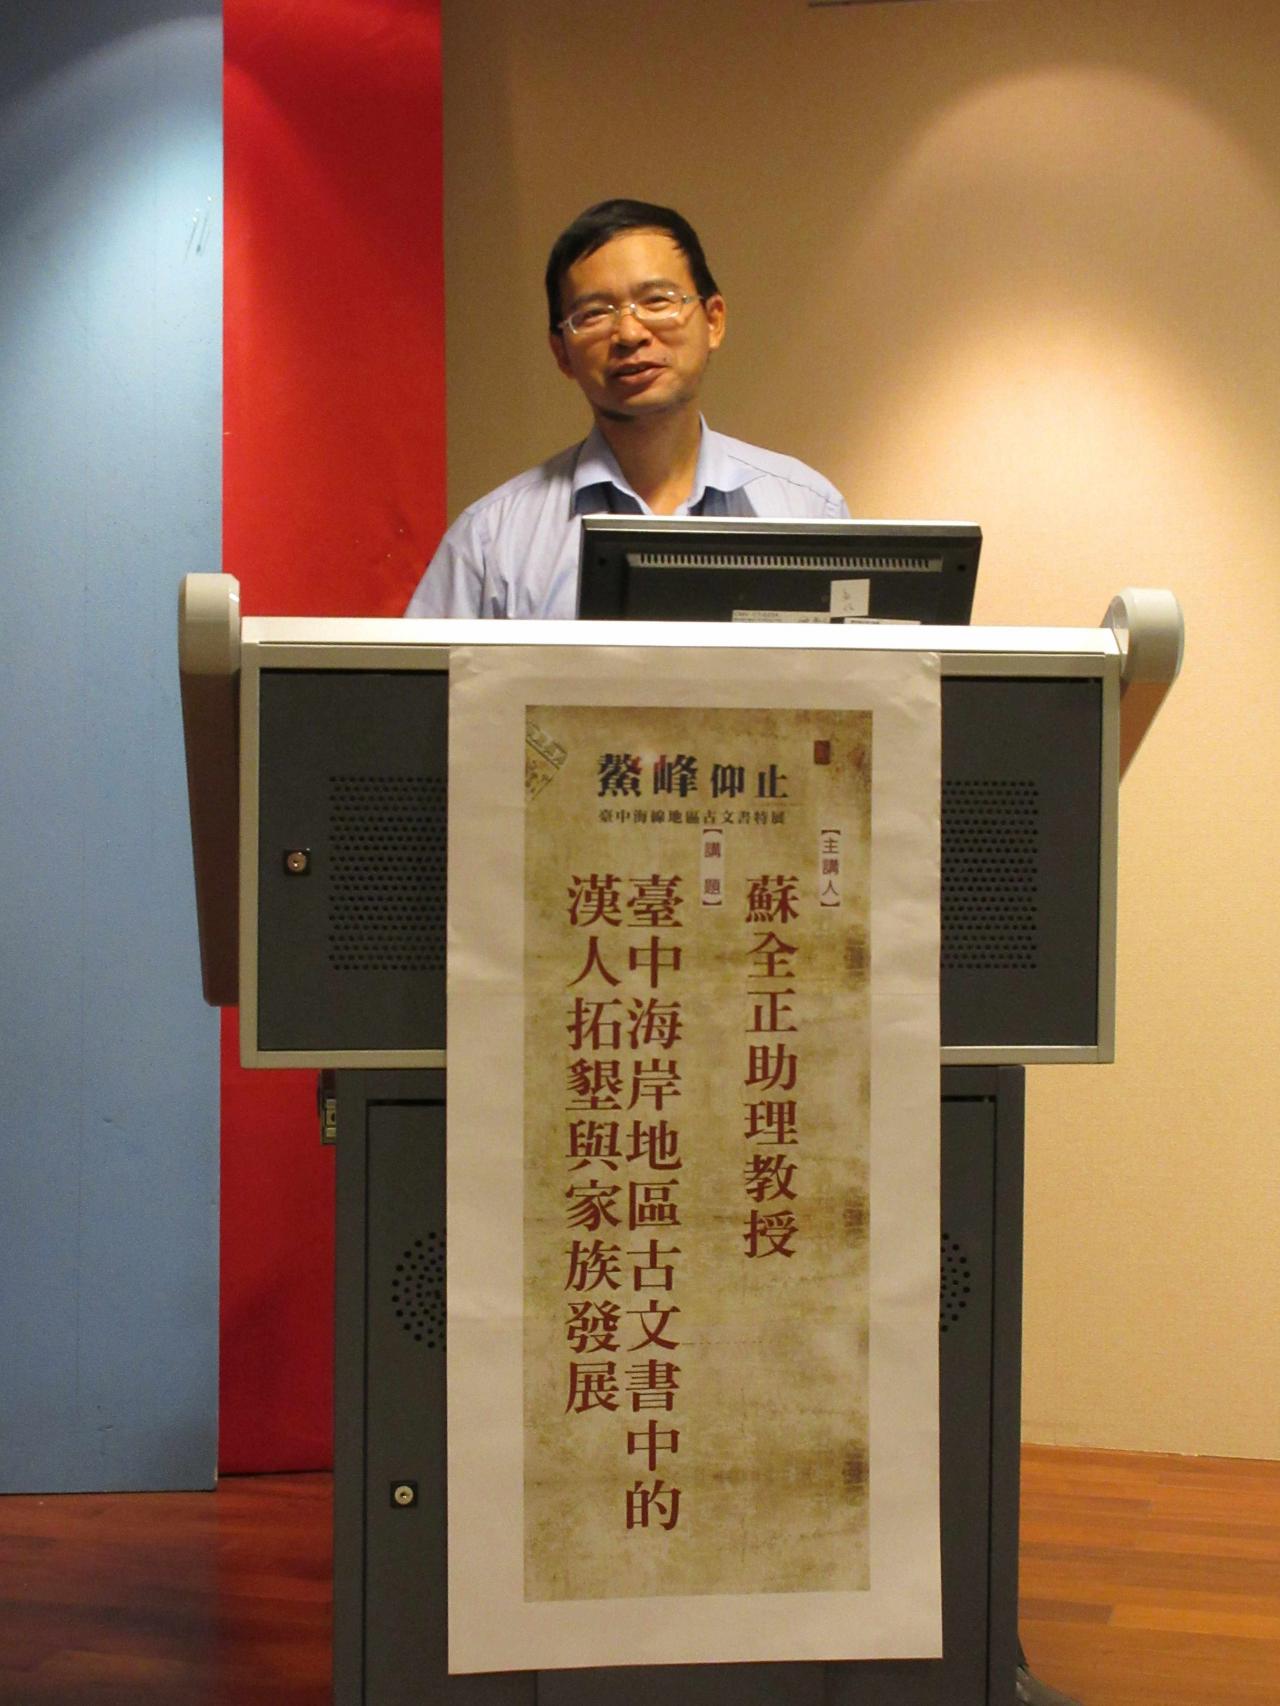 鰲峰仰止
臺中海線地區古文書特展
【主講人】
蘇全正助理教授
【講題】
臺中海岸地區古文書中的
漢人拓墾與家族發展